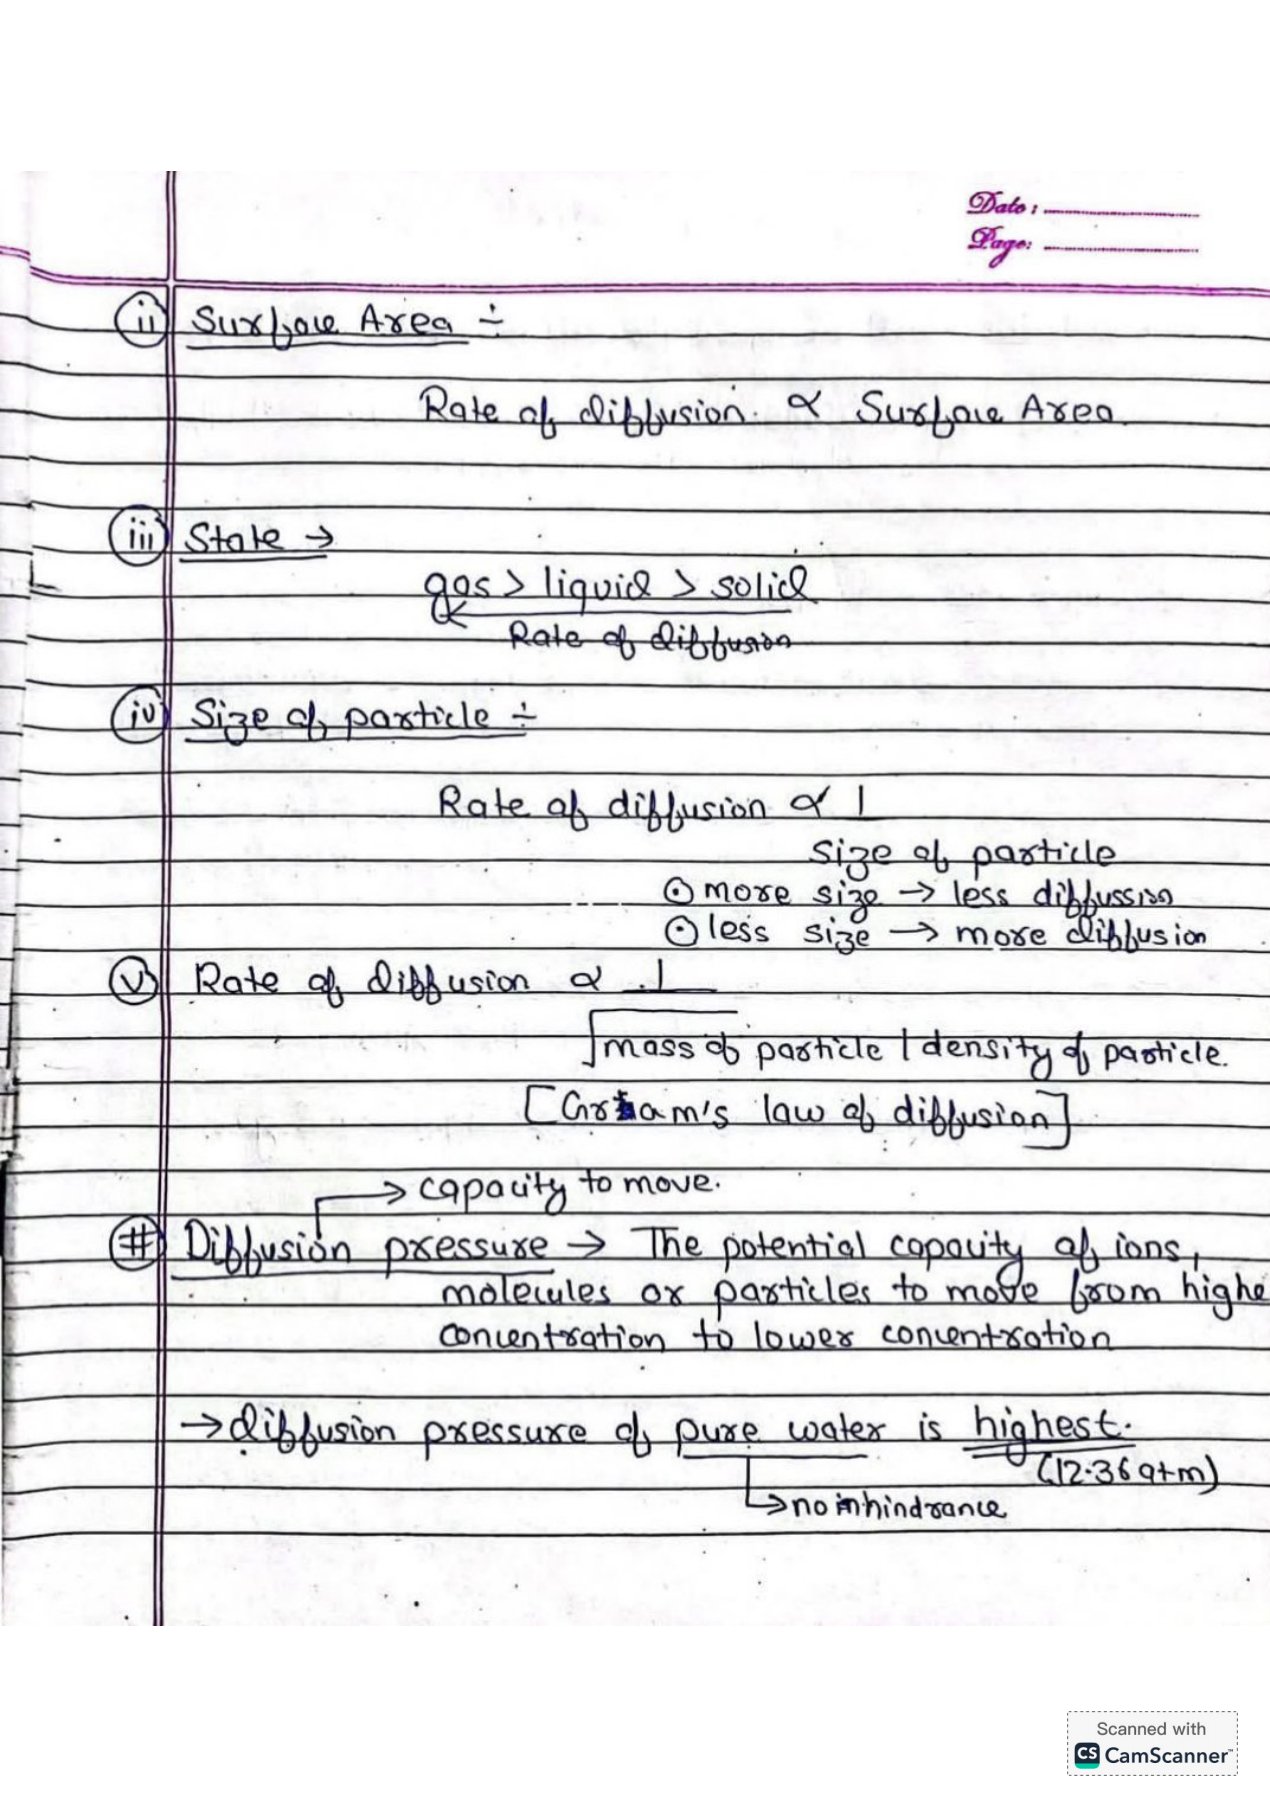 Date :
Page:
(ii) Surface Area ÷
Rate of diffusion. ∝ Surface Area.
(iii) State →
gas > liquid > solid
←
Rate of diffusion
(iv) Size of particle ÷
Rate of diffusion ∝ 1
Size of particle
⊙ more size → less diffussion
⊙ less size → more diffusion
(v) Rate of diffusion ∝ 1
√mass of particle / density of particle.
[Graham's law of diffusion]
→ capacity to move.
(#) Diffusion pressure → The potential capacity of ions,
molecules or particles to move from highe
concentration to lower concentration
→ diffusion pressure of pure water is highest.
(12.36 atm)
→ no hindrance
Scanned with
CS CamScanner